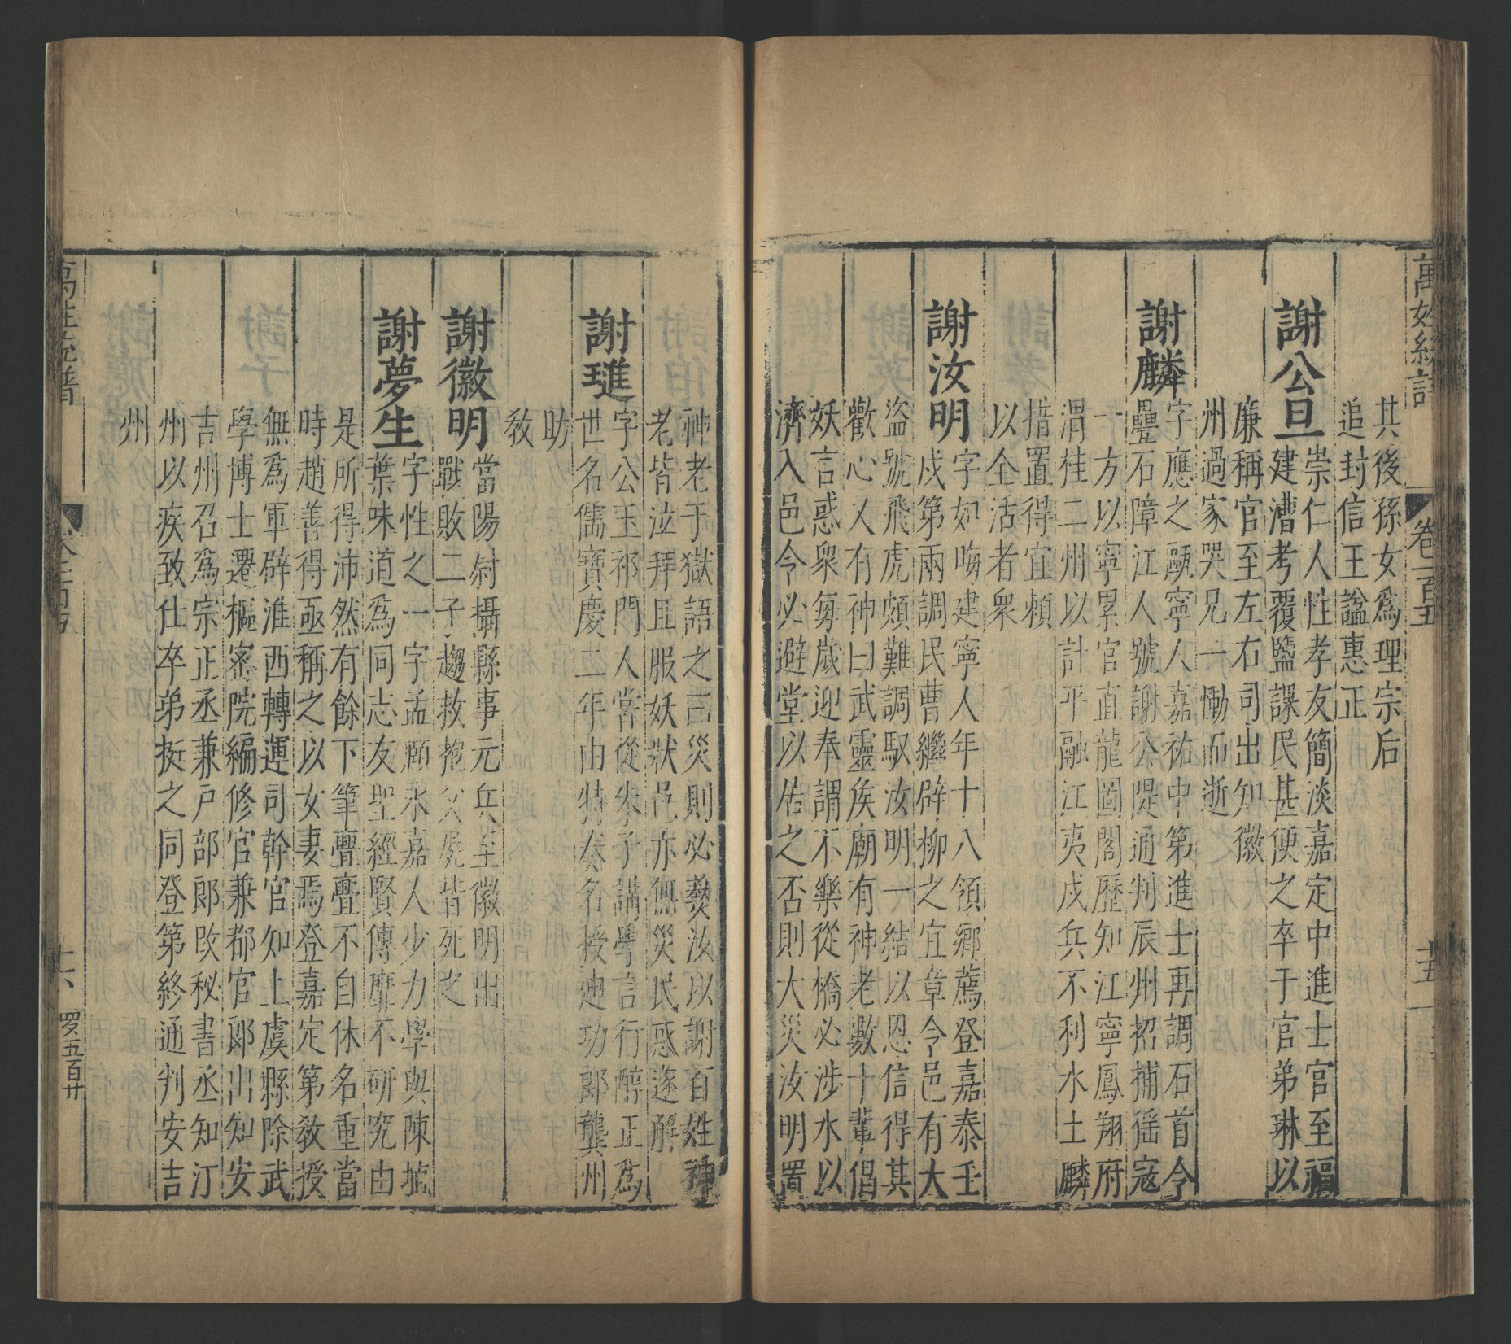 萬姓統譜
卷一百五
十五
其後孫女爲理宗后
追封信王諡惠正
謝公旦
崇仁人性孝友簡淡嘉定中進士官至福
建漕考覆鹽課民甚便之卒于官弟琳以
廉稱官至左右司出知徽
州過家哭兄一慟而逝
謝麟
字應之甌寧人嘉祐中第進士再調石首令
疊石障江人號謝公隄通判辰州招補猺寇
一方以寧累官直龍圖閣歷知江寧鳳翔府
渭桂二州以計平融江夷戍兵不利水土麟
措置得宜頼
以全活者衆
謝汝明
字如晦建寧人年十八領鄉薦登嘉泰壬
戍第兩調民曹繼辟柳之宜章令邑有大
盜號飛虎頗難調馭汝明一結以恩信得其
歡心人有神曰武靈侯廟有神老數十輩倡
妖言惑衆每歲迎奉謂不樂從橋必涉水以
濟入邑令必避堂以居之否則大災汝明置
神老于獄語之曰災則必爇汝以謝百姓神
老皆泣拜且服妖狀邑亦無災民惑遂解
謝璡
字公玉祁門人甞從朱子講學言行醇正爲
世名儒寶慶二年由特奏名授廸功郎龔州
助
敎
謝徽明
當陽尉攝縣事元兵至徽明出
戰敗二子趨救抱父屍皆死之
謝夢生
字性之一字孟頤永嘉人少力學與陳埴
葉味道爲同志友聖經賢傳靡不研究由
是所得沛然有餘下筆亹亹不自休名重當
時趙善得亟稱之以女妻焉登嘉定第敎授
無爲軍辟淮西轉運司幹官知上虞縣除武
學博士遷樞密院編修官兼都官郎出知安
吉州召爲宗正丞兼戸部郎改秘書丞知汀
州以疾致仕卒弟挺之同登第終通判安吉
州
萬姓統譜
卷一百五
十六
罗五百廿